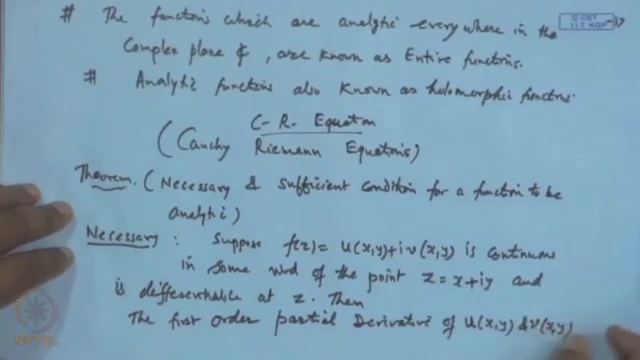 # The functions which are analytic everywhere in the
Complex plane ₵, are known as Entire functions.
# Analytic functions also known as holomorphic functions.
C-R. Equation
(Cauchy Riemann Equations)
Theorem. (Necessary & sufficient condition for a function to be
analytic)
Necessary : Suppose f(z) = u(x,y)+iv(x,y) is continuous
in some nbd of the point z = x+iy and
is differentiable at z. Then
The first order partial Derivative of u(x,y) & v(x,y)
© CET
I.I.T. KGP
NPTEL